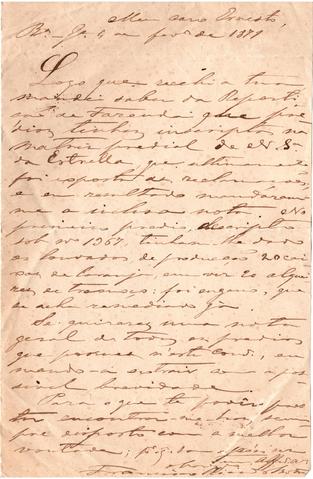 Meu caro Ernesto,
de 1879
Logo que recebi a tua
mandei saber da Reparti
ção de Fazenda que pre
dios tinhas inscriptos na
matriz predial de N. S.
da Estrella, que ultimam
foi exposta de reclamações,
e em resultado mandaram
me a inclusa nota. No
primeiro predio, descripto
sob nº 1967, tinham-lhe dado
os louvados de producção 20 cai
xas de laranja, em vez 20 alquei
res de tremoço: foi engano, que
se acha remediado já.
Se quizeres uma nota
geral de todos os predios
que possues n'este Conc.,
mando-a extrair com a pos
sivel brevidade.
Para o que te poder pres
tar encontrar-me-has sem
pre disposto com a melhor
vontade;